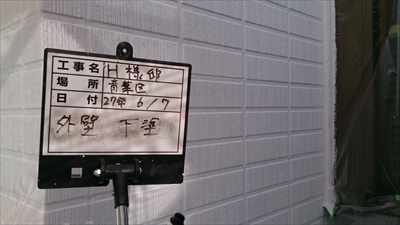 工事名 H様邸
場所 青葉区
日付 27年 6/7
外壁 下塗